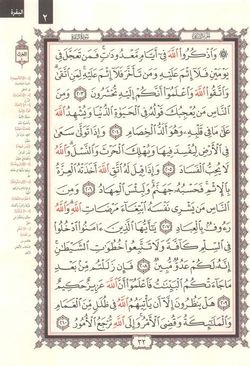 البقرة
٢
وَٱذْكُرُوا۟ ٱللَّهَ فِىٓ أَيَّامٍ مَّعْدُودَٰتٍ فَمَن تَعَجَّلَ فِى
يَوْمَيْنِ فَلَآ إِثْمَ عَلَيْهِ وَمَن تَأَخَّرَ فَلَآ إِثْمَ عَلَيْهِ لِمَنِ ٱتَّقَىٰ
وَٱتَّقُوا۟ ٱللَّهَ وَٱعْلَمُوٓا۟ أَنَّكُمْ إِلَيْهِ تُحْشَرُونَ ٢٠٣ وَمِنَ
ٱلنَّاسِ مَن يُعْجِبُكَ قَوْلُهُۥ فِى ٱلْحَيَوٰةِ ٱلدُّنْيَا وَيُشْهِدُ ٱللَّهَ
عَلَىٰ مَا فِى قَلْبِهِۦ وَهُوَ أَلَدُّ ٱلْخِصَامِ ٢٠٤ وَإِذَا تَوَلَّىٰ سَعَىٰ
فِى ٱلْأَرْضِ لِيُفْسِدَ فِيهَا وَيُهْلِكَ ٱلْحَرْثَ وَٱلنَّسْلَ وَٱللَّهُ
لَا يُحِبُّ ٱلْفَسَادَ ٢٠٥ وَإِذَا قِيلَ لَهُ ٱتَّقِ ٱللَّهَ أَخَذَتْهُ ٱلْعِزَّةُ
بِٱلْإِثْمِ فَحَسْبُهُۥ جَهَنَّمُ وَلَبِئْسَ ٱلْمِهَادُ ٢٠٦ وَمِنَ
ٱلنَّاسِ مَن يَشْرِى نَفْسَهُ ٱبْتِغَآءَ مَرْضَاتِ ٱللَّهِ وَٱللَّهُ
رَءُوفٌۢ بِٱلْعِبَادِ ٢٠٧ يَٰٓأَيُّهَا ٱلَّذِينَ ءَامَنُوا۟ ٱدْخُلُوا۟
فِى ٱلسِّلْمِ كَآفَّةً وَلَا تَتَّبِعُوا۟ خُطُوَٰتِ ٱلشَّيْطَٰنِ
إِنَّهُۥ لَكُمْ عَدُوٌّ مُّبِينٌ ٢٠٨ فَإِن زَلَلْتُم مِّنۢ بَعْدِ
مَا جَآءَتْكُمُ ٱلْبَيِّنَٰتُ فَٱعْلَمُوٓا۟ أَنَّ ٱللَّهَ عَزِيزٌ حَكِيمٌ
٢٠٩ هَلْ يَنظُرُونَ إِلَّآ أَن يَأْتِيَهُمُ ٱللَّهُ فِى ظُلَلٍ مِّنَ ٱلْغَمَامِ
وَٱلْمَلَٰٓئِكَةُ وَقُضِىَ ٱلْأَمْرُ وَإِلَى ٱللَّهِ تُرْجَعُ ٱلْأُمُورُ ٢١٠
٣٢